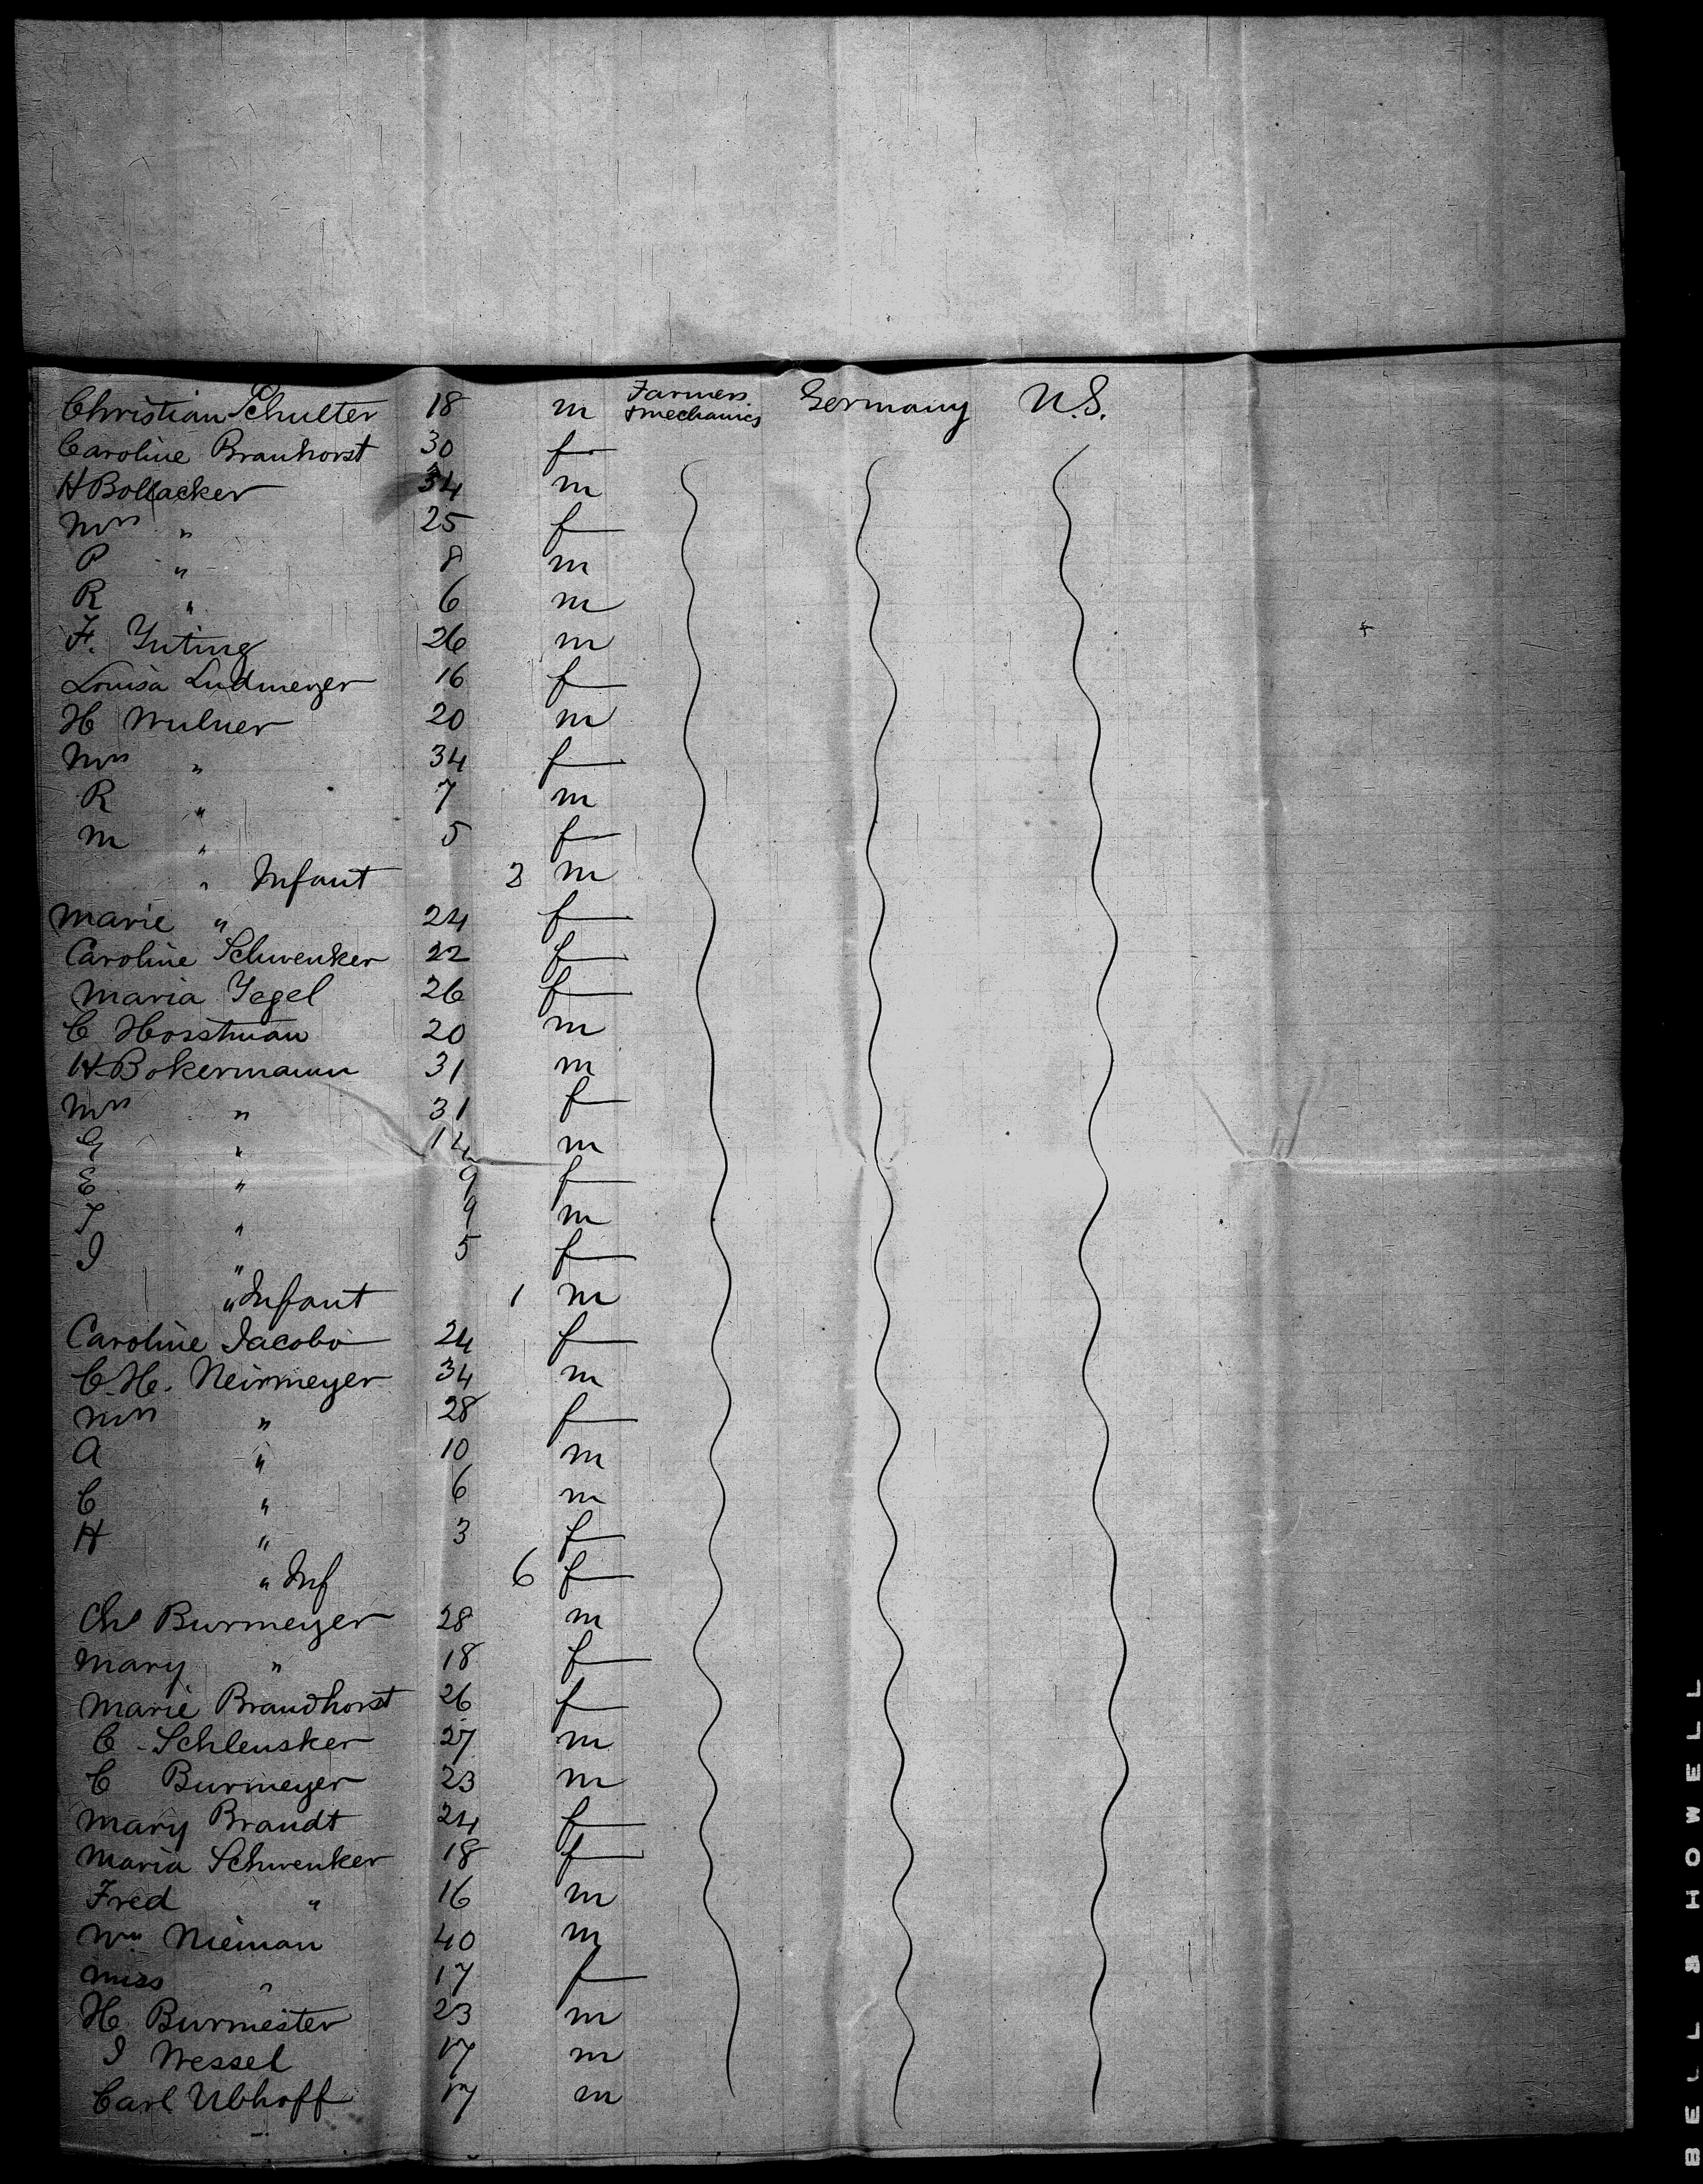 Christian Schulter 18 m Farmers & mechanics Germany U.S.
Caroline Brauhorst 30 f
H Bollacker 34 m
Mrs " 25 f
P " 8 m
R " 6 m
F. Yuting 26 m
Louisa Ludmeyer 16 f
H Wulner 20 m
Mrs " 34 f
R " 7 m
M " 5 f
" Infant 3 m
Marie " 24 f
Caroline Schwenker 22 f
Maria Yegel 26 f
C Horstman 20 m
H Bokermann 31 m
Mrs " 31 f
G " 14 m
E " 9 f
T " 9 m
I " 5 f
" Infant 1 m
Caroline Jacobo 24 f
C. H. Neirmeyer 34 m
Mrs " 28 f
A " 10 m
C " 6 m
H " 3 f
" Inf 6 f
Chs Burmeyer 28 m
Mary " 18 f
Marie Brandhorst 26 f
C Schlensker 27 m
C Burmeyer 23 m
Mary Brandt 24 f
Maria Schwenker 18 f
Fred " 16 m
Wm Nieman 40 m
Miss " 17 f
H Burmester 23 m
I Wessel 17 m
Carl Ubhoff 17 m
BELL & HOWELL